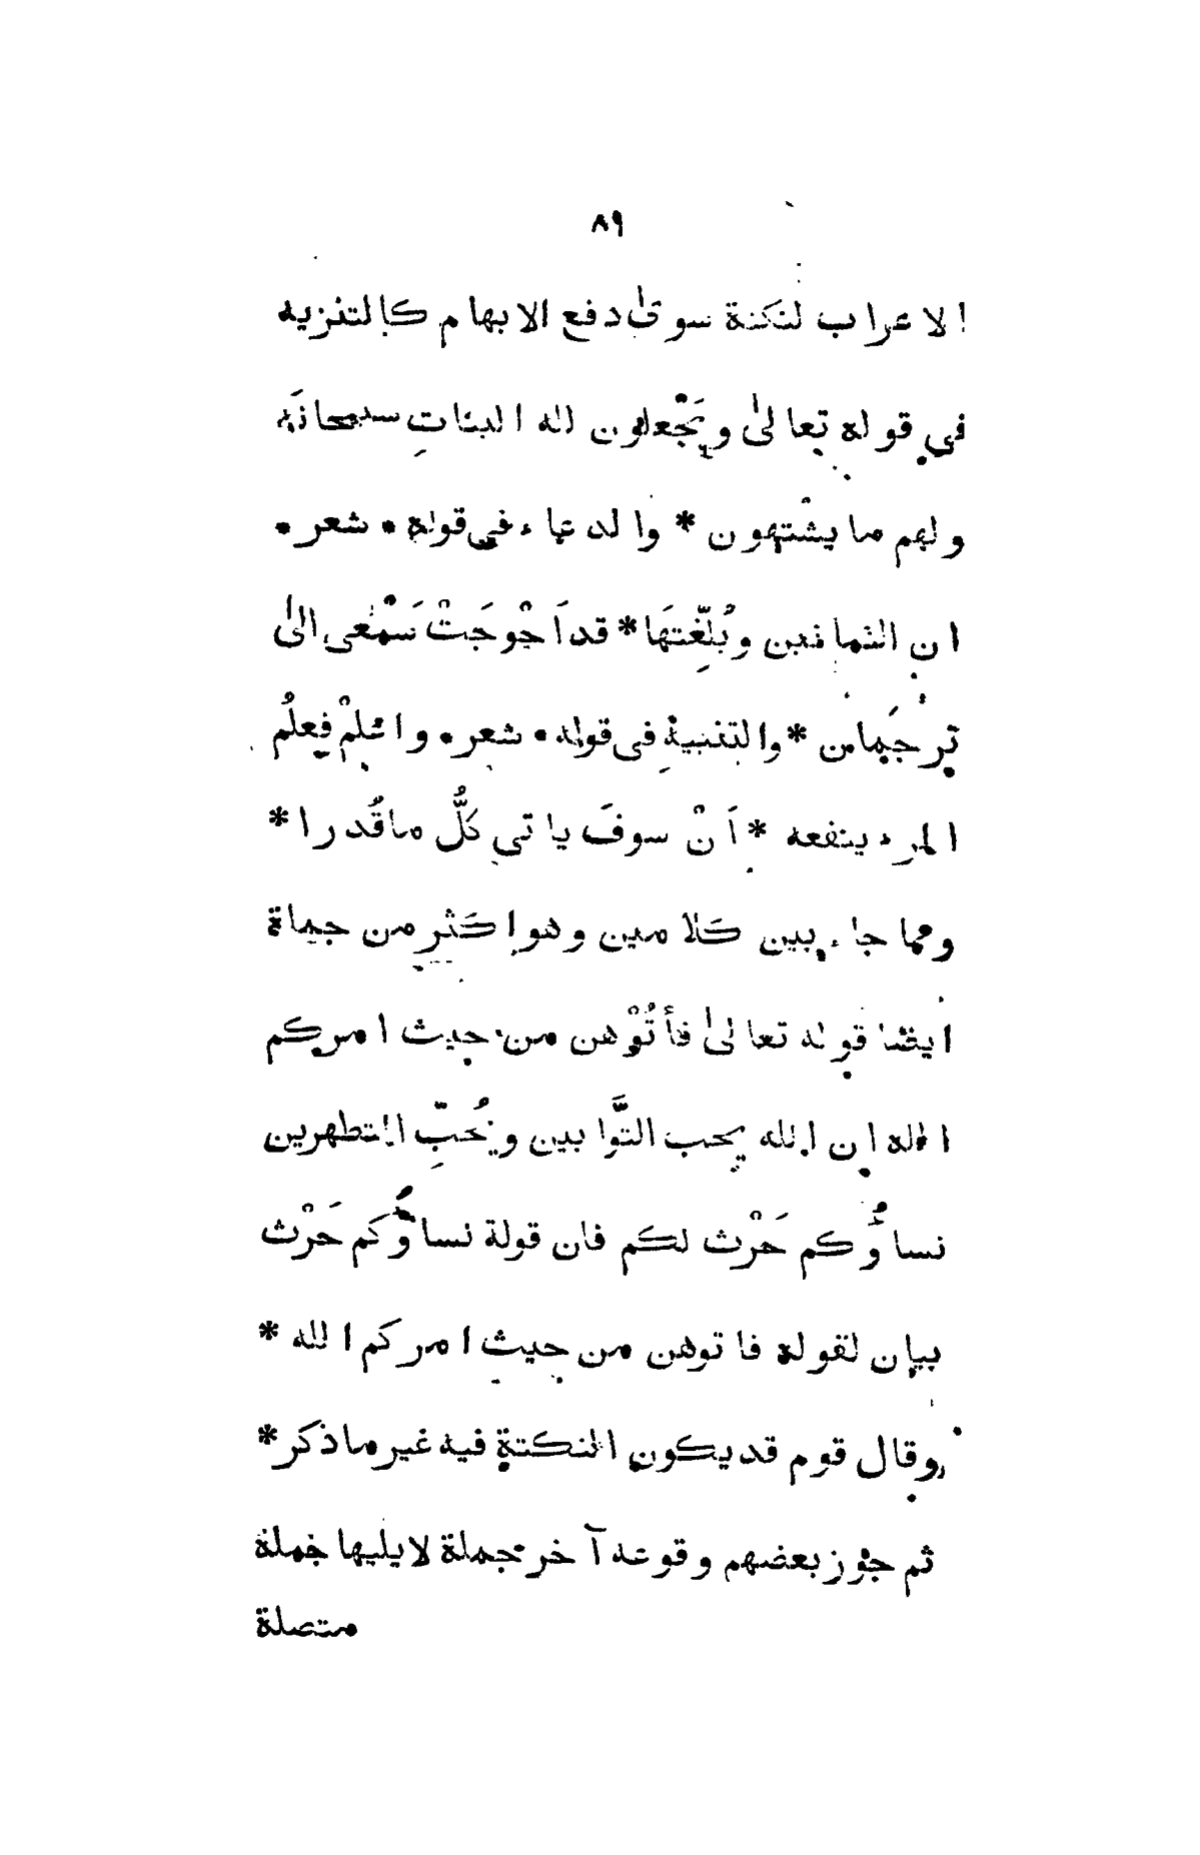 ٨٩
الاعراب لنكتة سوى دفع الابهام كالتنزيه
في قوله تعالىٰ ويَجْعلون لله البناتِ سبحانَه
ولهم ما يشْتهون * والدعاء في قوله • شعر •
ان الثمانين وبُلِّغتَها * قد اَحْوجَتْ سَمْعى الىٰ
ترْجَمان * والتنبيهِ فى قوله • شعر • واعْلمْ فعِلمُ
المرء ينفعه * اَنْ سوفَ ياتي كلُّ ماقُدرا *
ومما جاء بين كلامين وهو اكثر من جملة
ايضا قوله تعالىٰ فأتُوْهن من حيث امركم
الله ان الله يحب التَّوابين ويُحبِّ المتطهرين
نساؤُكم حَرْث لكم فان قوله نساؤُكم حَرْث
بيان لقوله فاتوهن من حيث امركم الله *
وقال قوم قد يكون النكتة فيه غير ماذكر *
ثم جوز بعضهم وقوعه آخر جملة لايليها جملة
متصلة